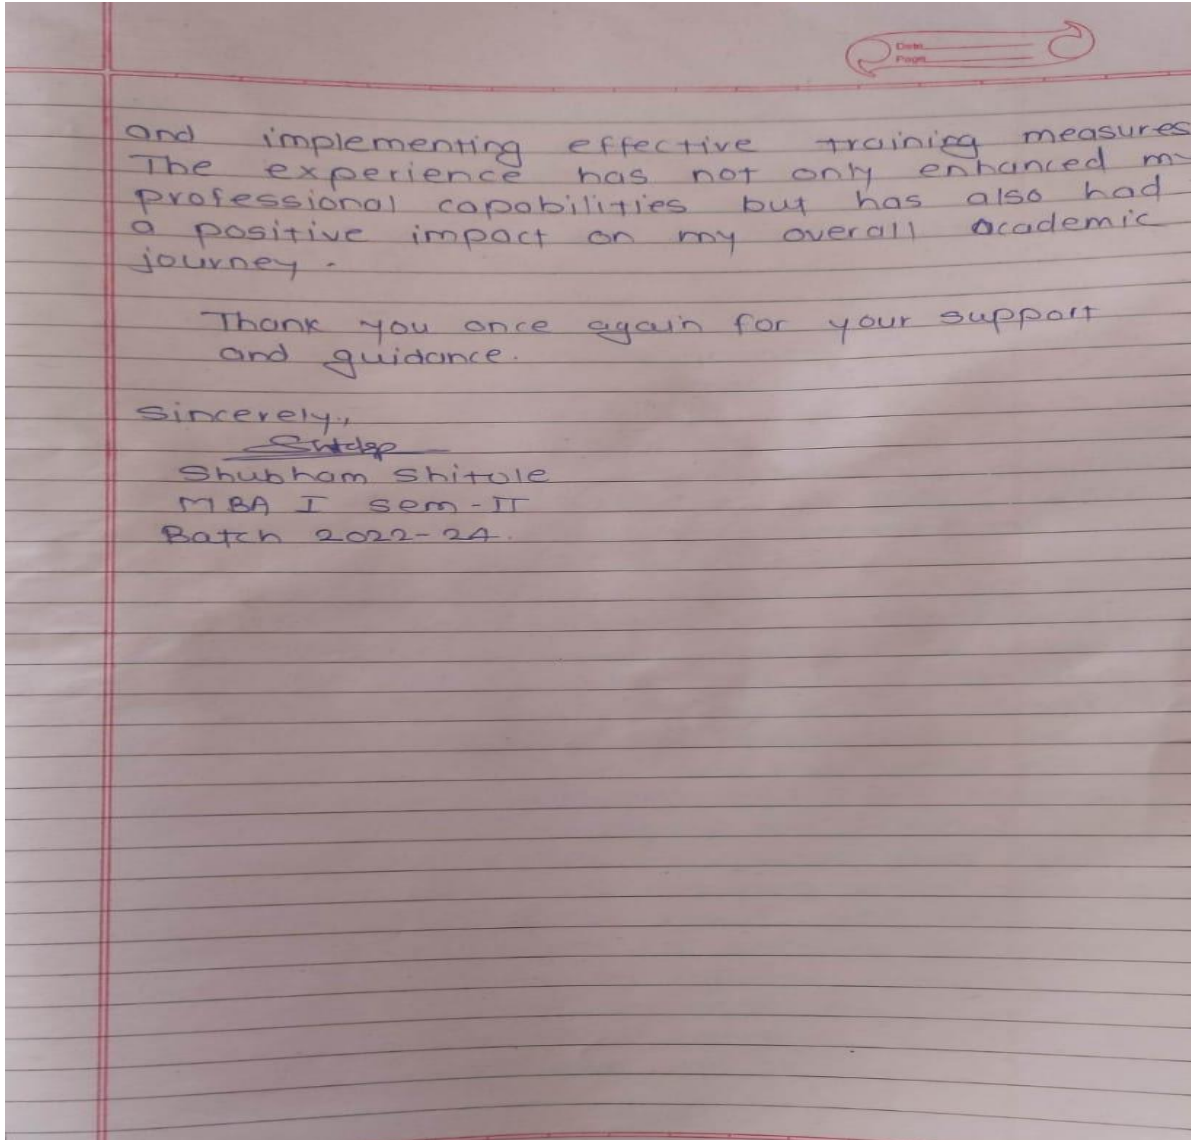 Date
Page
and implementing effective training measures
The experience has not only enhanced my
professional capabilities but has also had
a positive impact on my overall academic
journey.
Thank you once again for your support
and guidance.
Sincerely,
Shubham Shitole
MBA I Sem-II
Batch 2022-24.